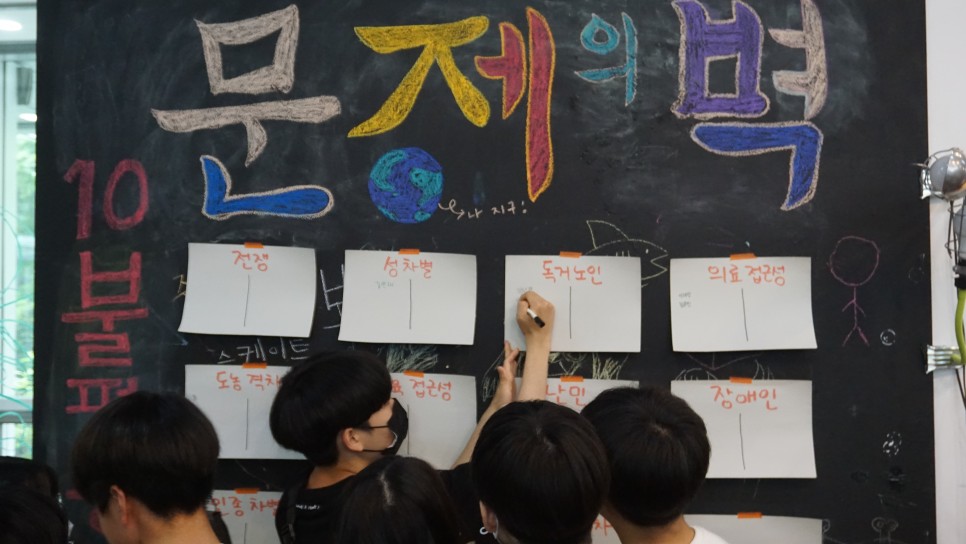 문제의 벽
10
불
편
나 지구!
전쟁
성차별
독거노인
의료 접근성
스케이트
도농 격차
접근성
난민
장애인
인종 차별